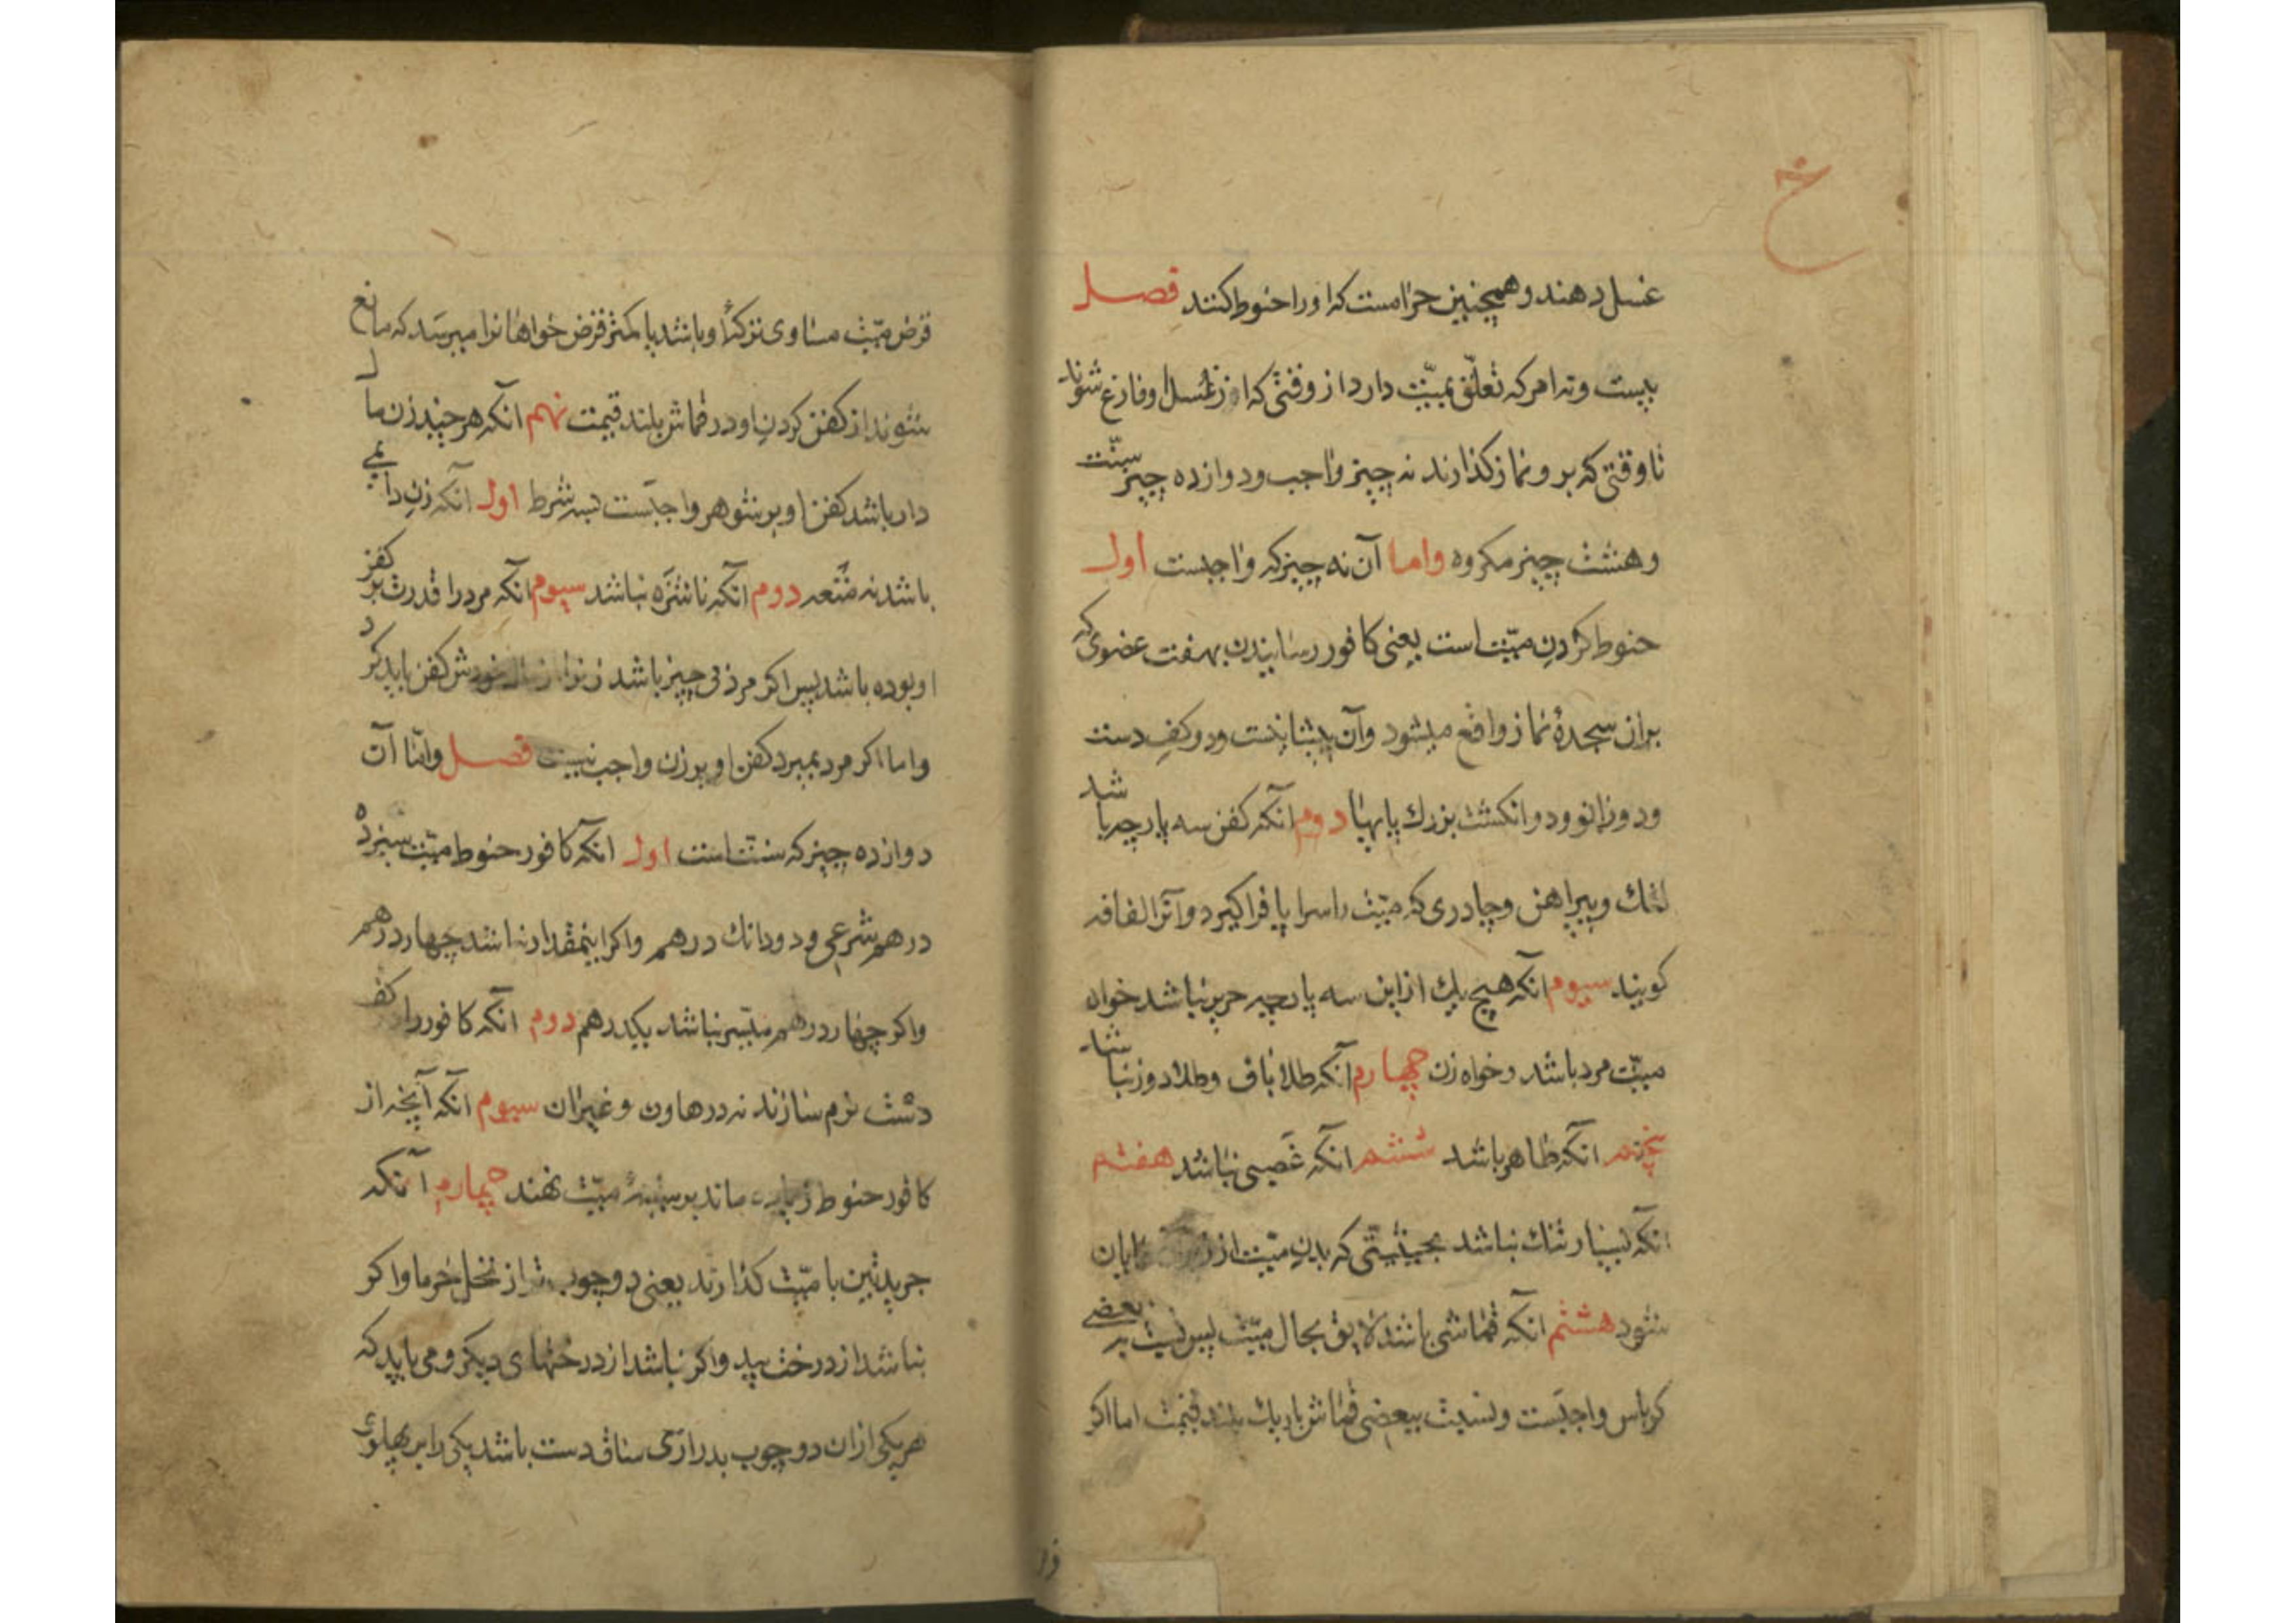 خ
غسل دهند و همچنین حرامست که او را حنوط کنند فصل
بیست و نه امر که تعلّق بمیّت دارد از وقتی که از غسل او فارغ شوند
تا وقتی که بر و نماز کذارند نه چیز واجب و دوازده چیز سنّت
و هشت چیز مکروه واما آن نه چیز که واجبست اول
حنوط کردن میّت است یعنی کافور رسانیدن بهفت عضوی که
بران سجدهٔ نماز واقع میشود و آن پیشانیست و دو کف دست
و دو زانو و دو انکشت بزرك پایها دوم انکه کفن سه پارچه باشد
لنك و پیراهن و چادری که میّت را سراپا فراکیرد و آنرا لفافه
کویند سیوم انکه هیچ یك از این سه پارچه حریر نباشد خواه
میّت مرد باشد و خواه زن چهارم انکه طلا باف و طلا دوز نباشد
پنجم انکه طاهر باشد ششم انکه غصبی نباشد هفتم
انکه بسیار تنك نباشد بحیثیّتی که بدن میّت از نمایان
شود هشتم انکه قماشی باشد لایق بحال میّت پس نسبت به بعضی
کرباس واجبست و نسبت ببعضی قماش باریك بلند قیمت اما اکر
قرض میّت مساوی ترکهٔ او باشد یا کمتر قرض خواهانرا میرسد که مانع
شوند از کفن کردن او در قماش بلند قیمت نهم انکه هر چند زن مال
دار باشد کفن او بر شوهر واجبست بسه شرط اول انکه زن دایمی
باشد نه متعه دوم انکه ناشزه نباشد سیوم انکه مرد را قدرت بر کفن
او بوده باشد پس اکر مرد بی چیز باشد زنرا از مال خودش کفن باید کرد
واما اکر مرد بمیرد کفن او بر زن واجب نیست فصل وامّا آن
دوازده چیز که سنّت است اول انکه کافور حنوط میّت سیزده
درهم شرعی و دو دانك درهم و اکر اینمقدار نباشد چهار درهم
و اکر چهار درهم میسّر نباشد یکدرهم دوم انکه کافور را کف
دست نرم سازند نه در هاون و غیر ان سیوم انکه آنچه از
کافور حنوط زیاده ماند بر سینهٔ میّت نهند چهارم آنکه
جریدتین با میّت کذارند یعنی دو چوب تر از نخل خرما و اکر
نباشد از درخت بید و اکر نباشد از درختهای دیکر و می باید که
هر یکی از ان دو چوب بدرازی ساق دست باشد یکی را بر پهلوی